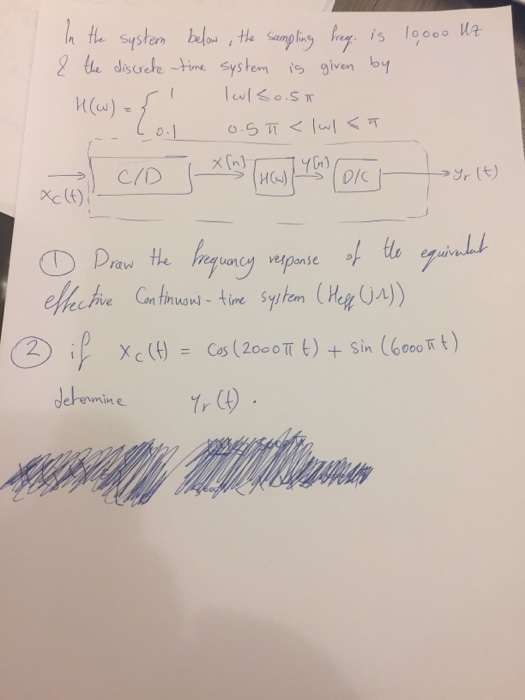 In the system below, the sampling freq. is 10,000 Hz
& the discrete-time system is given by
H(ω) = { 1 |ω| ≤ 0.5 π
0.1 0.5 π < |ω| ≤ π
xc(t) C/D x[n] H(ω) y[n] D/C yr(t)
① Draw the frequency response of the equivalent
effective Continuous-time system (Heff(jΩ))
② if xc(t) = Cos(2000π t) + Sin(6000π t)
determine yr(t).